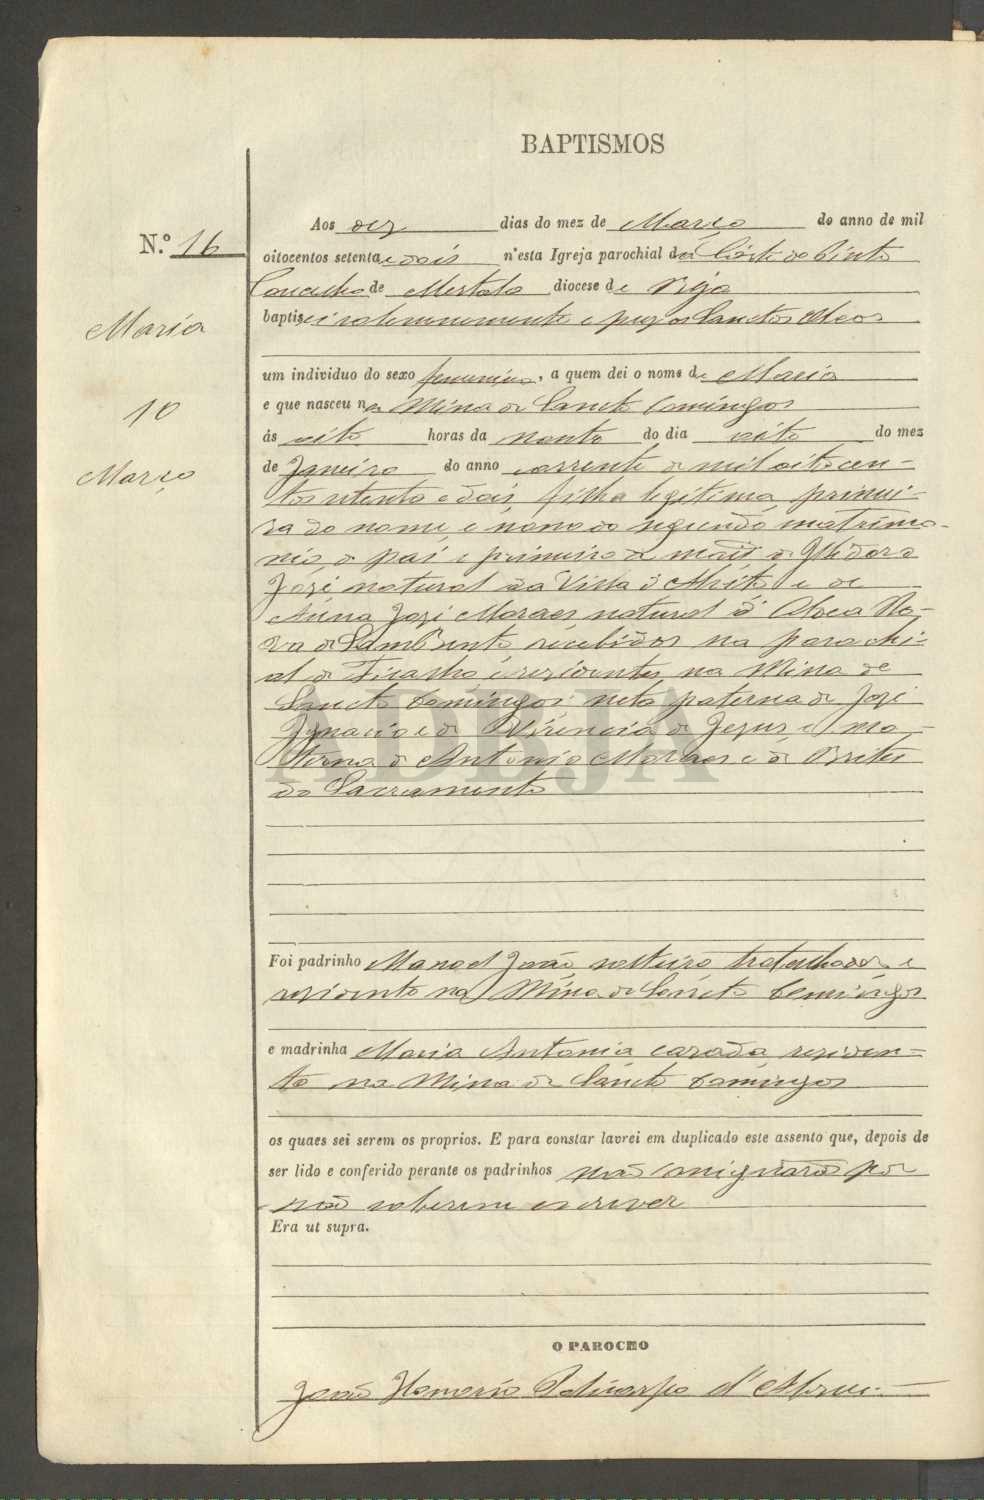 BAPTISMOS
N.º 16
Maria
10
Março
Aos dez dias do mez de Março do anno de mil
oitocentos setenta e dois n'esta Igreja parochial da Córte do Pinto
Concelho de Mertola diocese de Beja
baptisei solemnemente e puz os Sanctos Oleos
um individuo do sexo femenino, a quem dei o nome de Maria
e que nasceu na Mina de Sancto Domingos
ás oito horas da noute do dia oito do mez
de Janeiro do anno corrente de mil oitocen-
tos setenta e dois, filha legitima, primei-
ra do nome, e nona do segundo matrimo-
nio, do pai e primeiro da mãe de
José natural da Villa d'Alvito e de
Anna José Moraes natural d' Aldea No-
va de Sam Bento recebidos na parochi-
al de Ficalho e residentes na Mina de
Sancto Domingos: neta paterna de José
Ignacio e de Jesus e ma-
terna de Antonio Moraes e de Brites
do Sacramento
Foi padrinho Manoel João, solteiro trabalhador e
residente na Mina de Sancto Domingos
e madrinha Maria Antonia casada, residen-
te na Mina de Sancto Domingos
os quaes sei serem os proprios. E para constar lavrei em duplicado este assento que, depois de
ser lido e conferido perante os padrinhos não assignarão por
não saberem escrever
Era ut supra.
O PAROCHO
João Honorio Policarpo d'Abreu
ADBJA